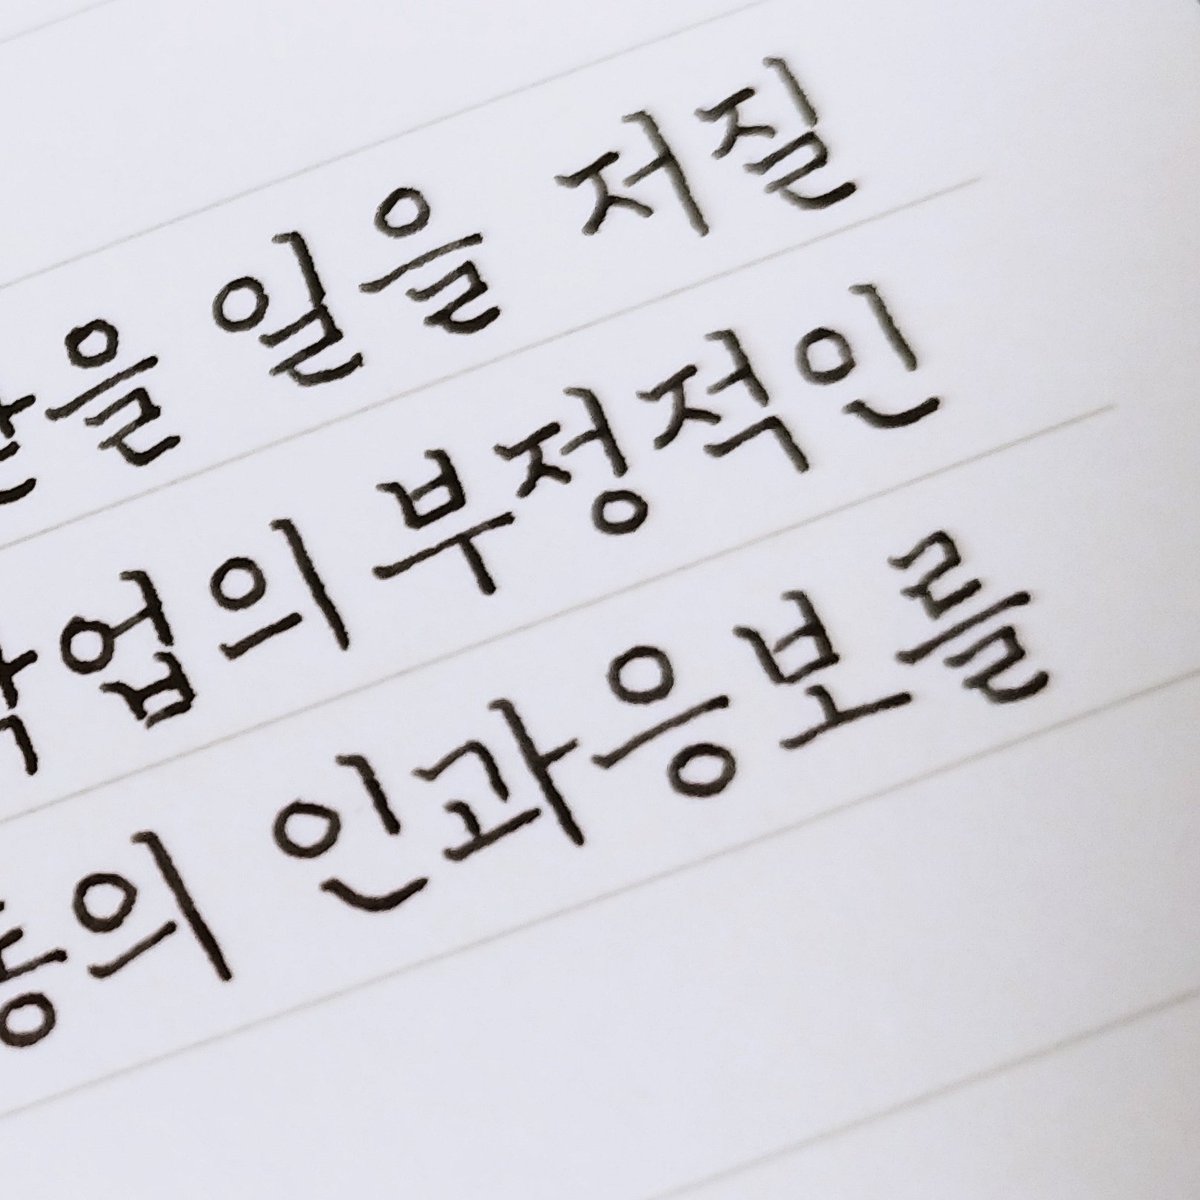 을 일을 저질
업의 부정적인
의 인과응보를